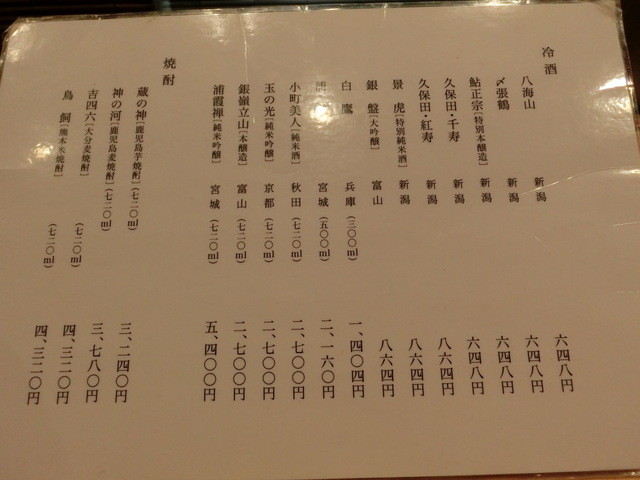 冷酒
八海山 新潟 六四八円
〆張鶴 新潟 六四八円
鮎正宗[特別本醸造] 新潟 六四八円
久保田・千寿 新潟 六四八円
久保田・紅寿 新潟 八六四円
景虎[特別純米酒] 新潟 八六四円
銀盤[大吟醸] 富山 八六四円
白鷹 兵庫 (三〇〇ml) 一、四〇四円
宮城 (五〇〇ml) 二、一六〇円
小町美人[純米酒] 秋田 (七二〇ml) 二、七〇〇円
玉の光[純米吟醸] 京都 (七二〇ml) 二、七〇〇円
銀嶺立山[本醸造] 富山 (七二〇ml) 二、七〇〇円
浦霞禅[純米吟醸] 宮城 (七二〇ml) 五、四〇〇円
焼酎
蔵の神[鹿児島芋焼酎] (七二〇ml) 三、二四〇円
神の河[鹿児島麦焼酎] (七二〇ml) 三、七八〇円
吉四六[大分麦焼酎] (七二〇ml) 四、三二〇円
鳥飼[熊本米焼酎] (七二〇ml) 四、三二〇円